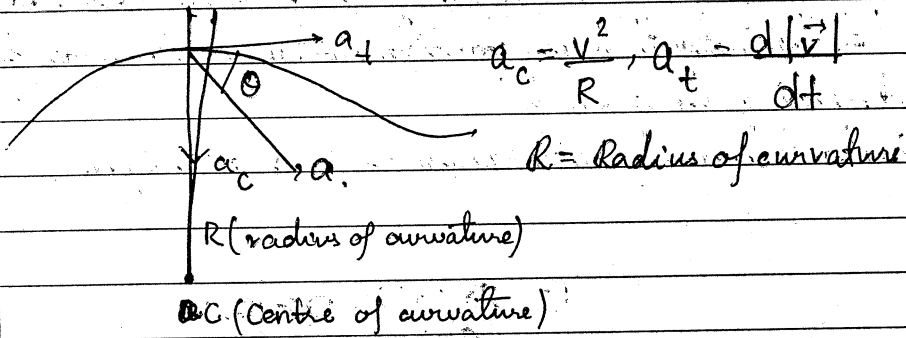 a_t
a_c = v²/R, a_t = d|v⃗|/dt
θ
a_c
a.
R = Radius of curvature
R (radius of curvature)
C (Centre of curvature)